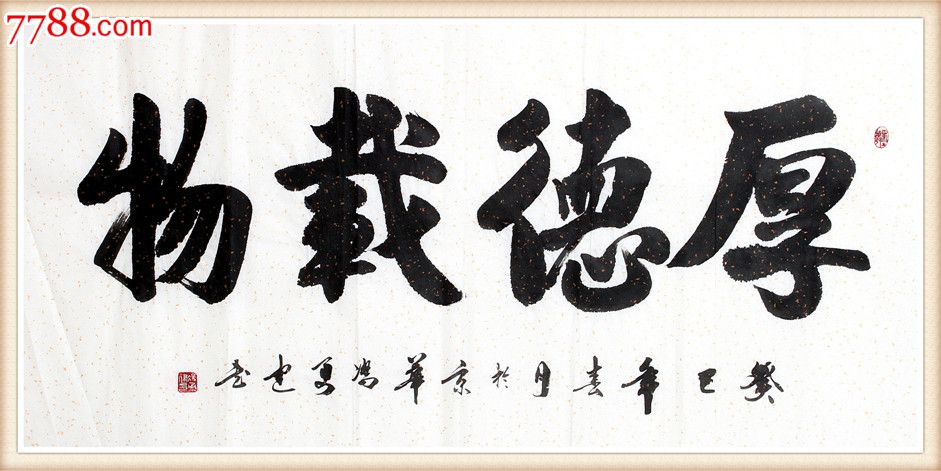 7788.com
厚德载物
癸巳年春月於京华冯